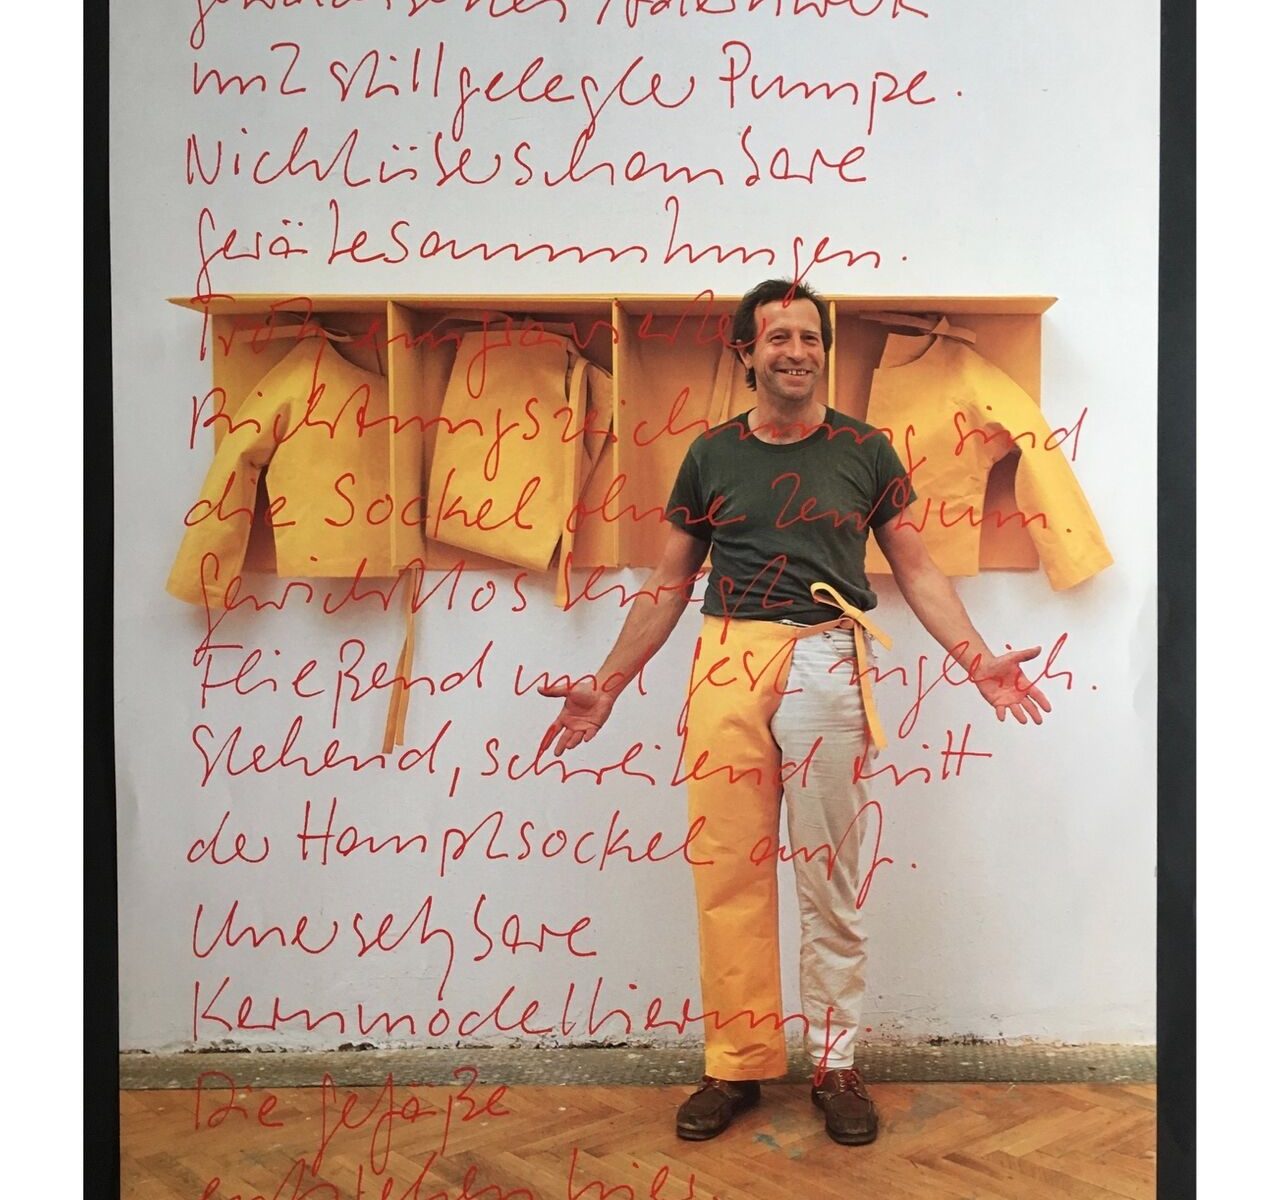 mit stillgelegter Pumpe.
Nichtüberschaubare
Gerätesammlungen.
Trotz eingravierter
Richtungszeichnung sind
die Sockel ohne Zentrum.
Gewichtlos bewegt
Fließend und fest zugleich.
Stehend, schreibend tritt
der Hauptsockel auf.
Unersetzbare
Kernmodellierung.
Die Gefäße
entstehen hier.